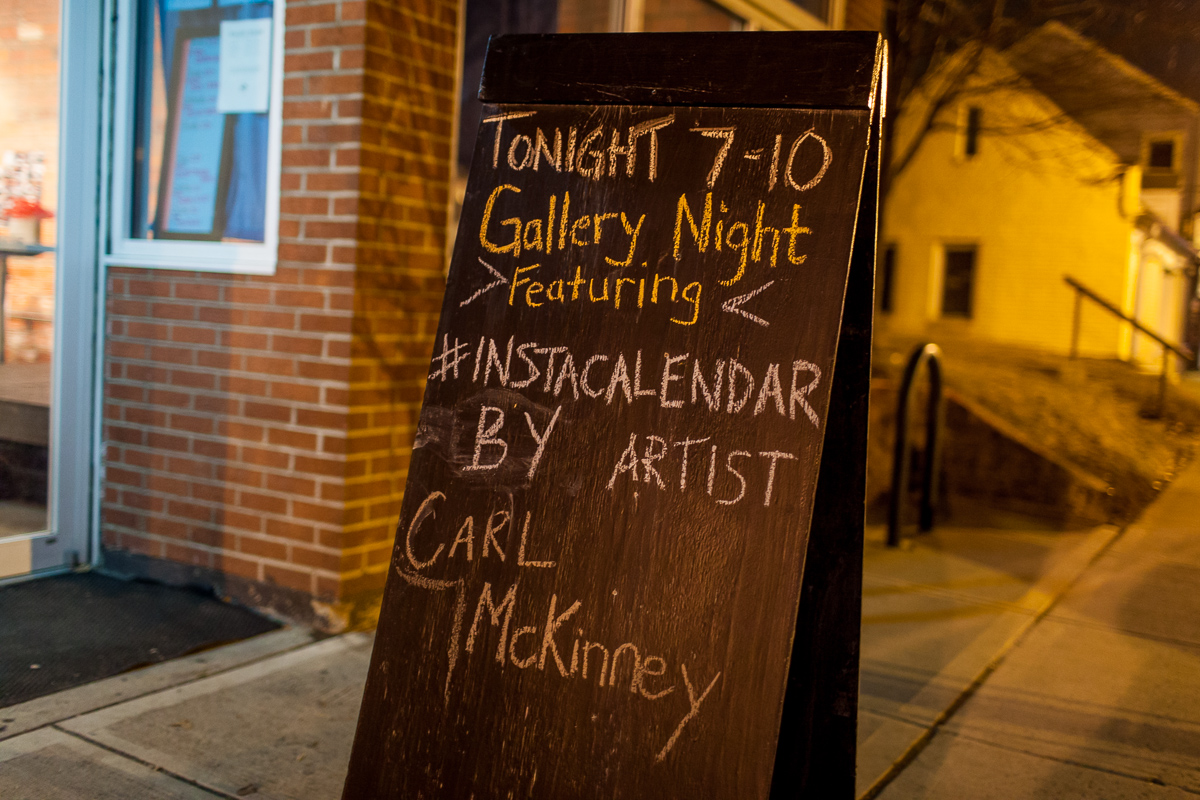 TONIGHT 7-10
Gallery Night
> Featuring <
#INSTACALENDAR
BY ARTIST
CARL
McKinney